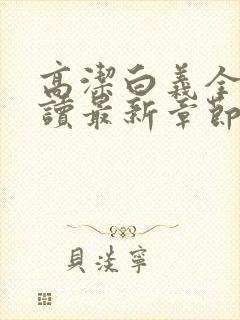 高潔白義全
讀最新章節
貝淡寧